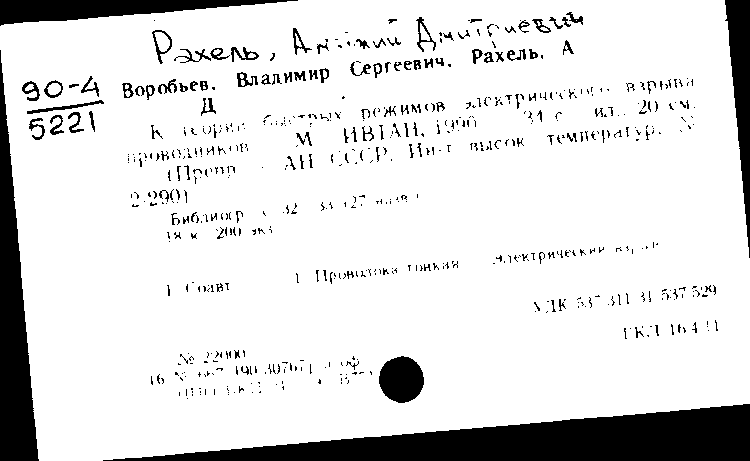 Рахель, Дмитриевич
90-4
5221
Воробьев, Владимир Сергеевич, Рахель, А
Д
К теории быстрых режимов электрического взрыва
проводников М ИВТАН, 1990 34 с ил., 20 см.
(Препр АН СССР, Ин-т высок температур, №
2-290)
Библиогр с 32 33 (27 назв
18 к 200 экз
1 Соавт 1 Проволока тонкая Электрический
УДК 537 311 31 537 529
ГКЛ 16 4 11
№ 22000
16 №